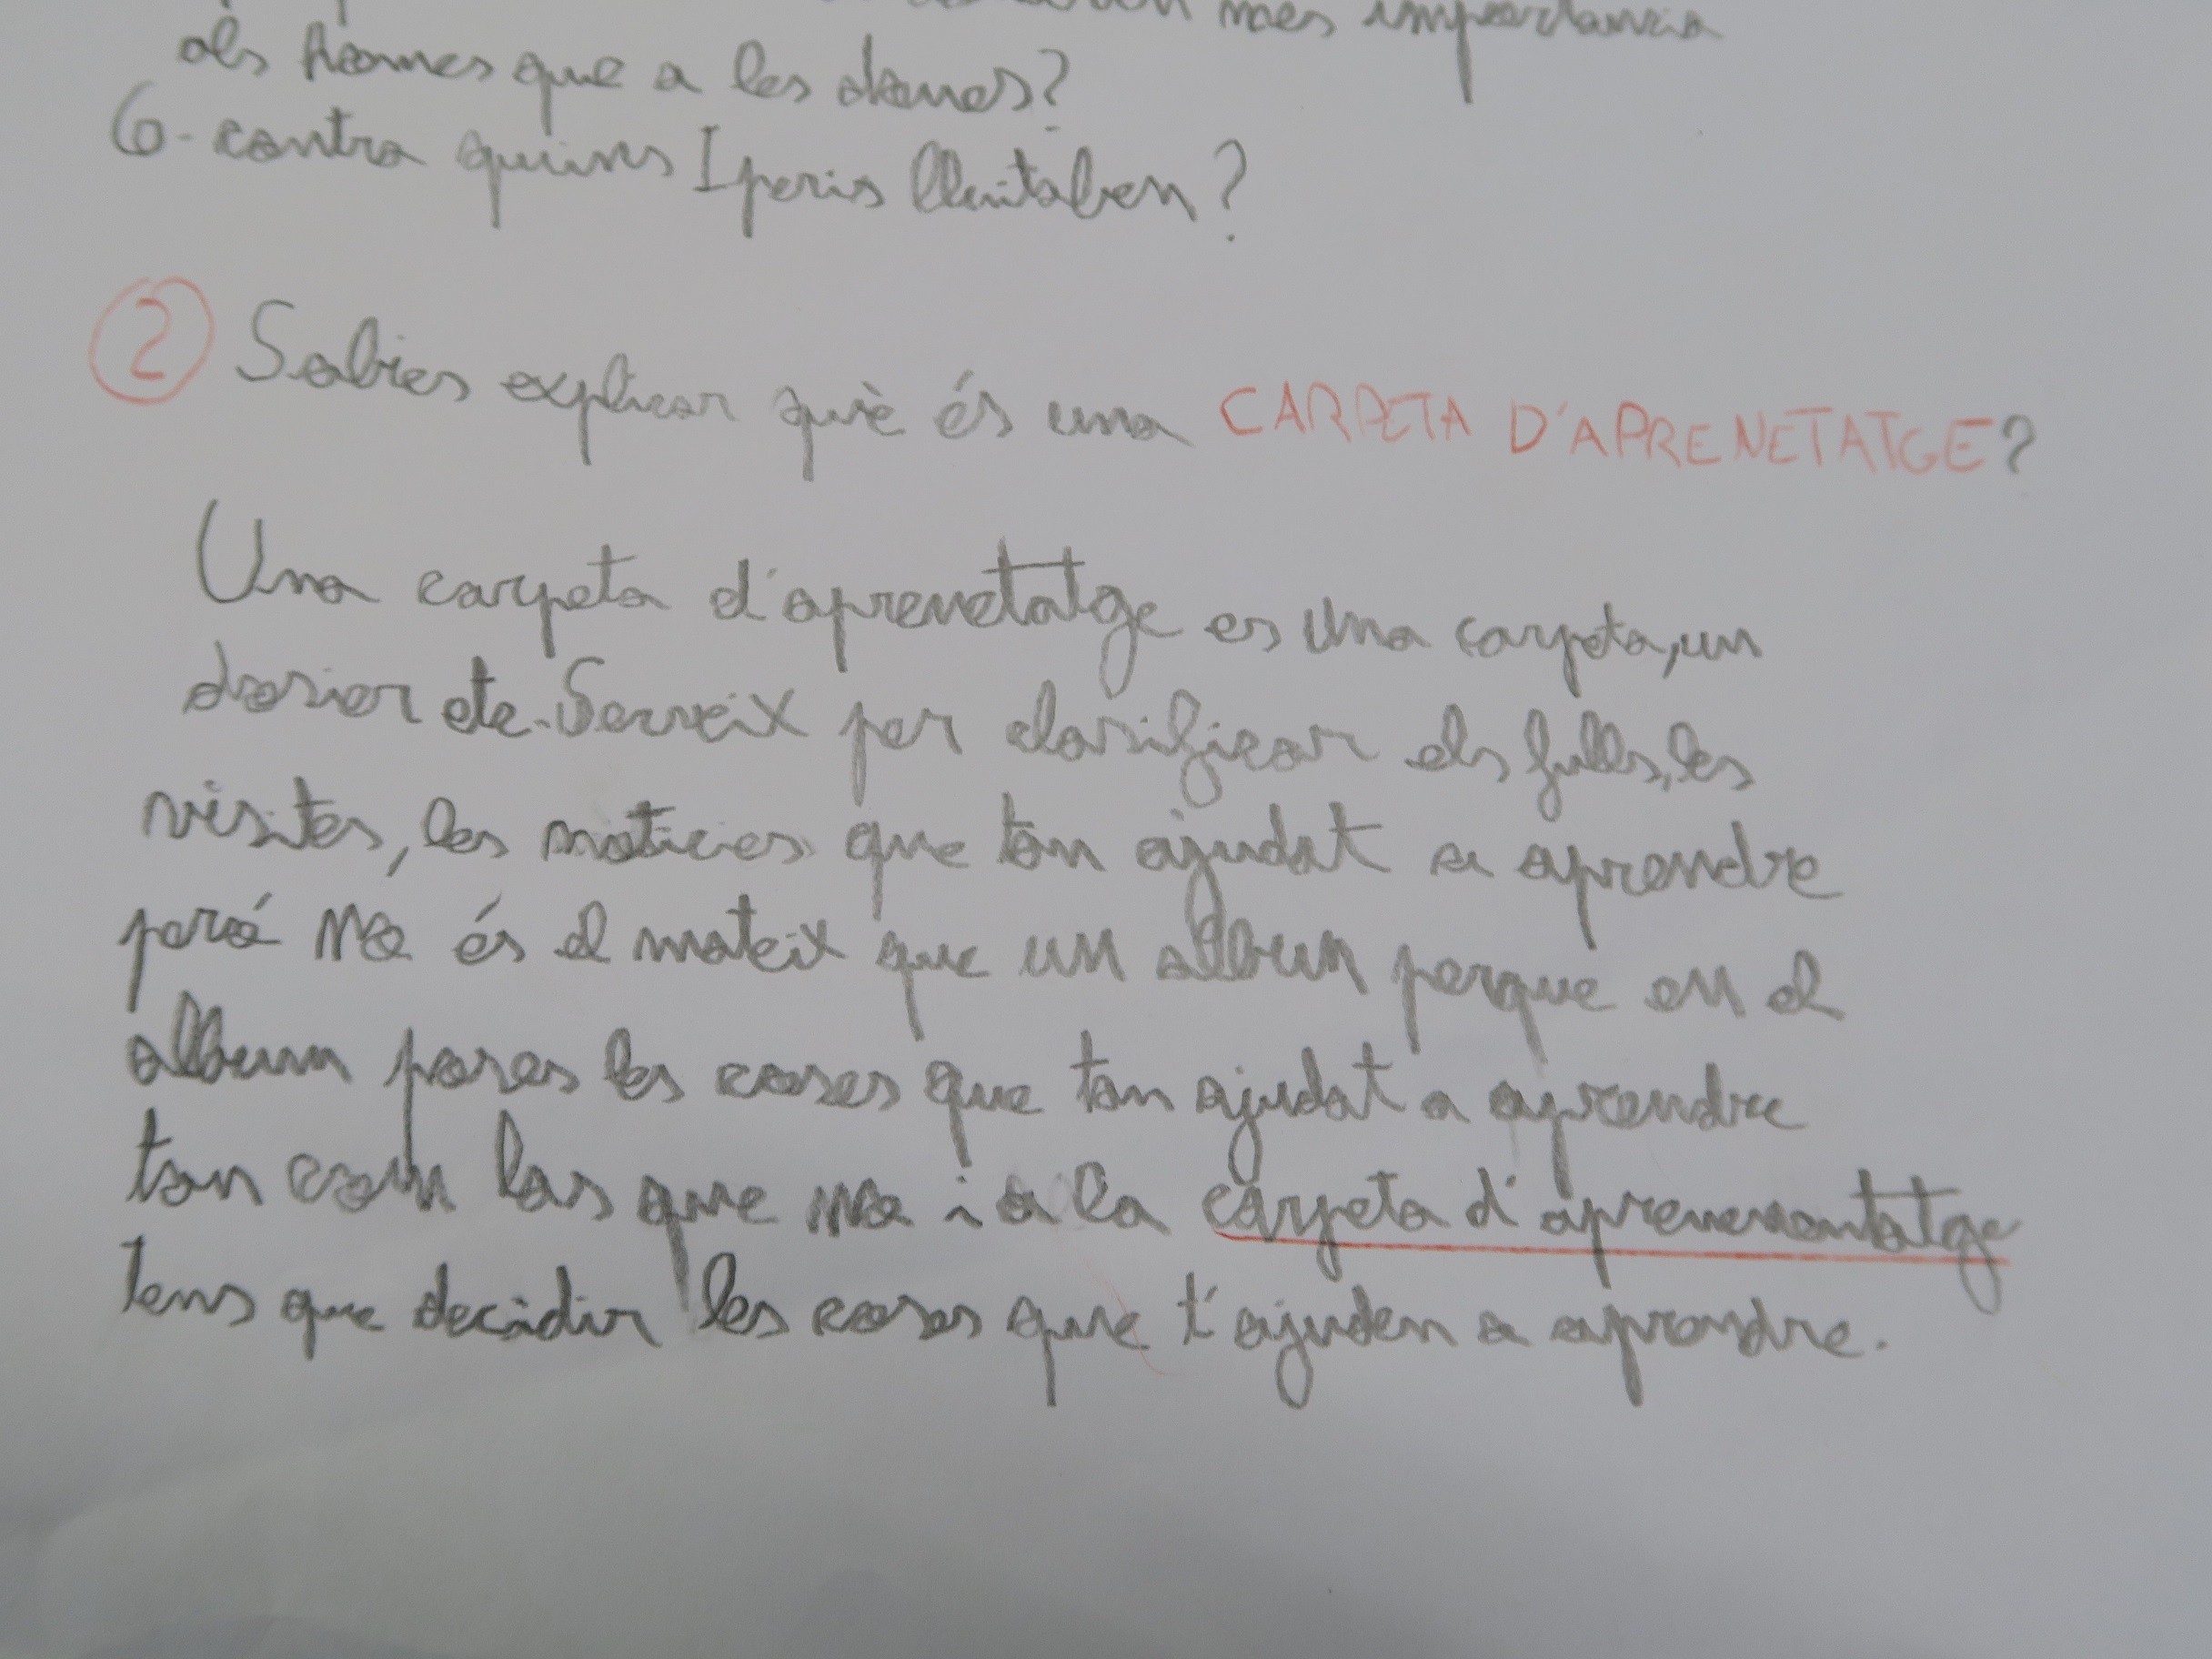 més importancia
als homes que a les dones?
6- contra quins Iperis lluitaben?
2 Sabies explicar què és una CARPETA D'APRENETATGE?
Una carpeta d'aprenetatge es una carpeta, un
dosier etc. Serveix per clasificar els fulls, les
visites, les noticies que tan ajudat a aprendre
peró no és el mateix que un album perque en el
album poses les coses que tan ajudat a aprendre
tan com las que no i a la carpeta d'aprenenentatge
tens que decidir les coses que t'ajuden a aprendre.